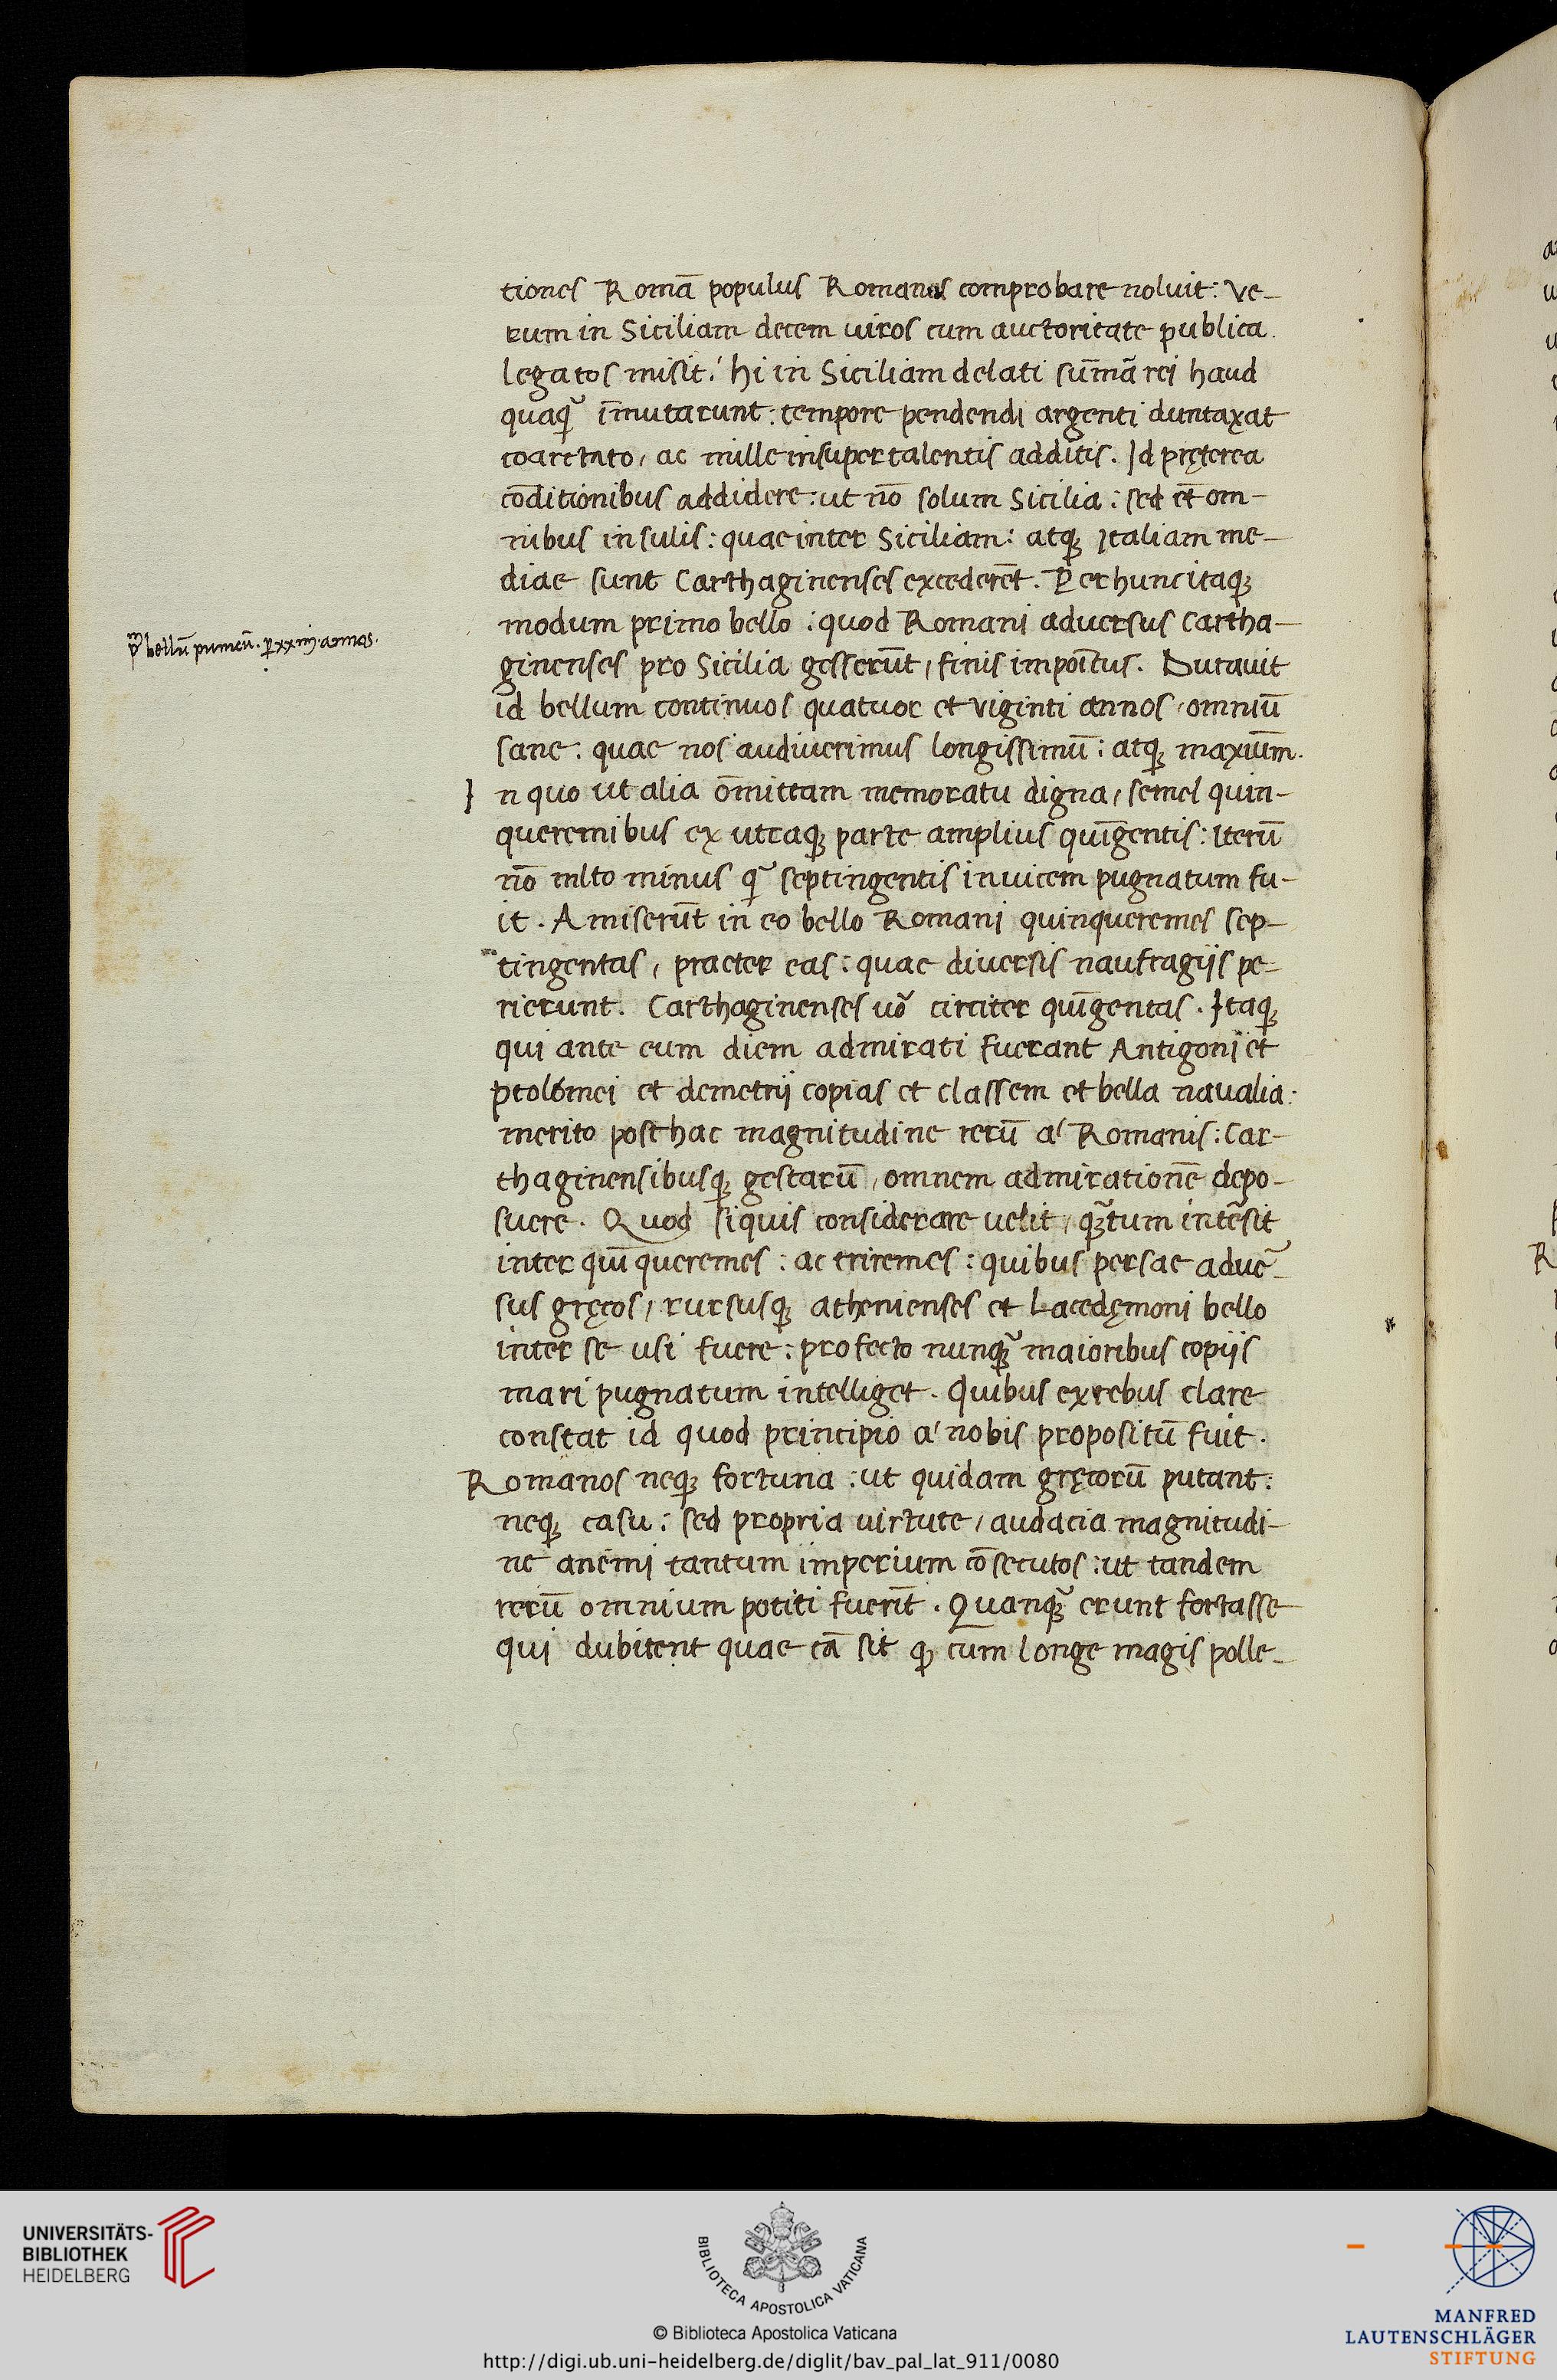 tiones Romā populus Romanos comprobare noluit: Ve-
rum in Siciliam decem uiros cum auctoritate publica.
legatos misit. hi in Siciliam delati sum̄ā rei haud
quaq̄ im̄utarunt: tempore pendendi argenti duntaxat
coarctato, ac mille insuper talentis additis. Id pręterea
cōditionibus addidere: ut nō solum Sicilia: sed et̄ om-
nibus insulis: quae inter Siciliam: atq; Italiam me-
diae sunt Carthaginenses excederēt. Per hunc itaq;
modum primo bello: quod Romani aduersus Cartha-
pᵐ bellū punicū. p̱ xxiiij. annos.
ginenses pro Sicilia gesserūt, finis impoītus. Durauit
id bellum continuos quatuor et viginti annos, omniū
sane: quae nos audiuerimus longissimū: atq; maxiūm.
In quo ut alia ōmittam memoratu digna, semel quin-
queremibus ex utraq; parte amplius quīgentis: iterū
nō mlto minus q̄ septingentis inuicem pugnatum fu-
it. Amiserūt in eo bello Romani quinqueremes sep-
tingentas, praeter eas: quae diuersis naufragijs pe-
rierunt. Carthaginenses uō circiter quīgentas. Itaq;
qui ante eum diem admirati fuerant Antigoni et
Ptolomei et demetrij copias et classem et bella naualia:
merito post hac magnitudine rerū a' Romanis: Car-
thaginensibusq; gestarū, omnem admirationē depo-
suere. Quod siquis considerare uelit, q̄tum int̄sit
inter quīqueremes: ac triremes: quibus persae aduē-
sus gręcos, rursusq; athenienses et Lacedęmoni bello
inter se usi fuere: profecto nunq̄ maioribus copijs
mari pugnatum intelliget. Quibus ex rebus clare
constat id quod principio a' nobis propositū fuit.
Romanos neq; fortuna: ut quidam gręcorū putant:
neq; casu: sed propria virtute, audacia magnitudi-
ne animi tantum imperium cōsecutos: ut tandem
rerū omnium potiti fuerīt. Quanq̄ erunt fortasse
qui dubitent quae cā sit q; cum longe magis polle-
UNIVERSITÄTS-
BIBLIOTHEK
HEIDELBERG
BIBLIOTECA APOSTOLICA VATICANA
© Biblioteca Apostolica Vaticana
http://digi.ub.uni-heidelberg.de/diglit/bav_pal_lat_911/0080
MANFRED
LAUTENSCHLÄGER
STIFTUNG